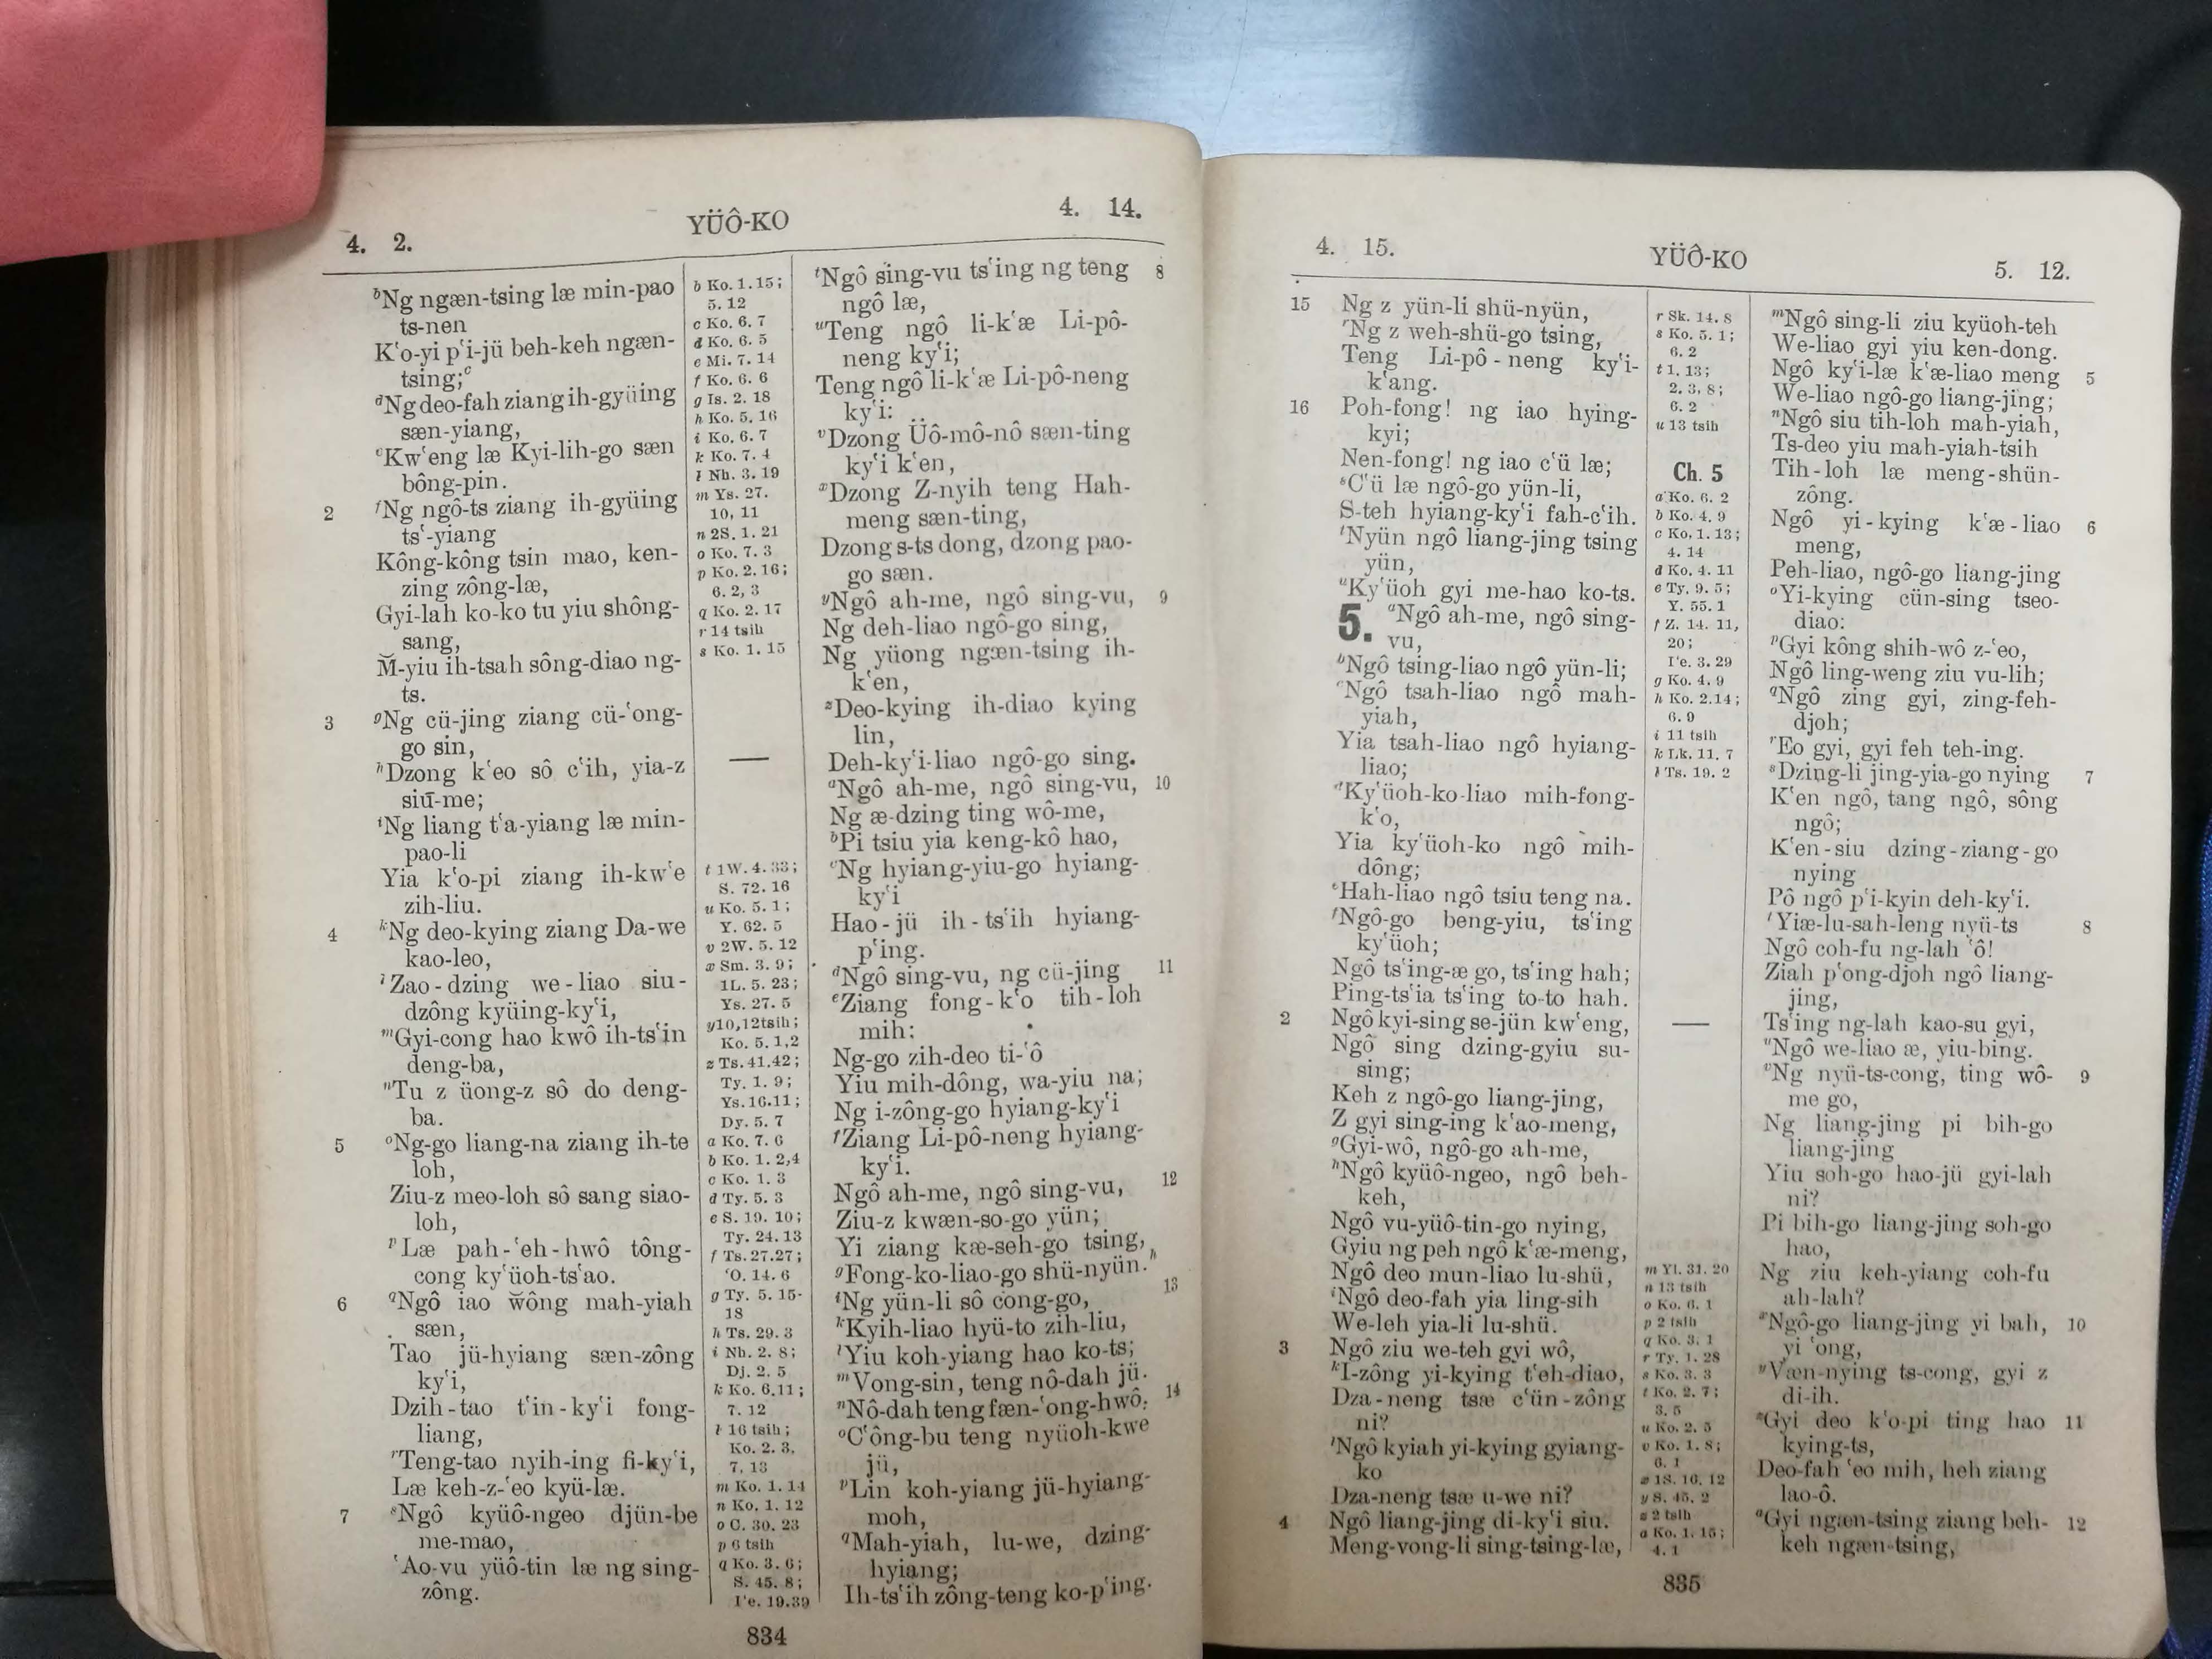 4. 2.
YÜÔ-KO
4. 14.
ᵇNg ngæn-tsing læ min-pao
ts-nen
K‘o-yi p‘i-jü beh-keh ngæn-
tsing;ᶜ
ᵈNg deo-fah ziang ih-gyüing
sæn-yiang,
ᵉKw‘eng læ Kyi-lih-go sæn
bông-pin.
2 ᶠNg ngô-ts ziang ih-gyüing
ts‘-yiang
Kông-kông tsin mao, ken-
zing zông-læ,
Gyi-lah ko-ko tu yiu shông-
sang,
M̆-yiu ih-tsah sông-diao ng-
ts.
3 ᵍNg cü-jing ziang cü-‘ong-
go sin,
ʰDzong k‘eo sô c‘ih, yia-z
siū-me;
ⁱNg liang t‘a-yiang læ min-
pao-li
Yia k‘o-pi ziang ih-kw‘e
zih-liu.
4 ᵏNg deo-kying ziang Da-we
kao-leo,
ˡZao-dzing we-liao siu-
dzông kyüing-ky‘i,
ᵐGyi-cong hao kwô ih-ts‘in
deng-ba,
ⁿTu z üong-z sô do deng-
ba.
5 ᵒNg-go liang-na ziang ih-te
loh,
Ziu-z meo-loh sô sang siao-
loh,
ᵖLæ pah-‘eh-hwô tông-
cong ky‘üoh-ts‘ao.
6 ᵠNgô iao w̆ông mah-yiah
sæn,
Tao jü-hyiang sæn-zông
ky‘i,
Dzih-tao t‘in-ky‘i fong-
liang,
ʳTeng-tao nyih-ing fi-ky‘i,
Læ keh-z-‘eo kyü-læ.
7 ˢNgô kyüô-ngeo djün-be
me-mao,
‘Ao-vu yüô-tin læ ng sing-
zông.
b Ko. 1. 15;
5. 12
c Ko. 6. 7
d Ko. 6. 5
e Mi. 7. 14
f Ko. 6. 6
g Is. 2. 18
h Ko. 5. 16
i Ko. 6. 7
k Ko. 7. 4
l Nh. 3. 19
m Ys. 27.
10, 11
n 2S. 1. 21
o Ko. 7. 3
p Ko. 2. 16;
6. 2, 3
q Ko. 2. 17
r 14 tsih
s Ko. 1. 15
t 1W. 4. 33;
S. 72. 16
u Ko. 5. 1;
Y. 62. 5
v 2W. 5. 12
x Sm. 3. 9;
1L. 5. 23;
Ys. 27. 5
y 10, 12 tsih;
Ko. 5. 1, 2
z Ts. 41. 42;
Ty. 1. 9;
Ys. 16. 11;
Dy. 5. 7
a Ko. 7. 6
b Ko. 1. 2, 4
c Ko. 1. 3
d Ty. 5. 3
e S. 19. 10;
Ty. 24. 13
f Ts. 27. 27;
‘O. 14. 6
g Ty. 5. 15-
18
h Ts. 29. 3
i Nh. 2. 8;
Dj. 2. 5
k Ko. 6. 11;
7. 12
l 16 tsih;
Ko. 2. 3.
7. 13
m Ko. 1. 14
n Ko. 1. 12
o C. 30. 23
p 6 tsih
q Ko. 3. 6;
S. 45. 8;
I‘e. 19. 39
ᵗNgô sing-vu ts‘ing ng teng 8
ngô læ,
ᵘTeng ngô li-k‘æ Li-pô-
neng ky‘i;
Teng ngô li-k‘æ Li-pô-neng
ky‘i:
ᵛDzong Üô-mô-nô sæn-ting
ky‘i k‘en,
ˣDzong Z-nyih teng Hah-
meng sæn-ting,
Dzong s-ts dong, dzong pao-
go sæn.
ʸNgô ah-me, ngô sing-vu, 9
Ng deh-liao ngô-go sing,
Ng yüong ngæn-tsing ih-
k‘en,
ᶻDeo-kying ih-diao kying
lin,
Deh-ky‘i-liao ngô-go sing.
ᵃNgô ah-me, ngô sing-vu, 10
Ng æ-dzing ting wô-me,
ᵇPi tsiu yia keng-kô hao,
ᶜNg hyiang-yiu-go hyiang-
ky‘i
Hao-jü ih-ts‘ih hyiang-
p‘ing.
ᵈNgô sing-vu, ng cü-jing 11
ᵉZiang fong-k‘o tih-loh
mih:
Ng-go zih-deo ti-‘ô
Yiu mih-dông, wa-yiu na;
Ng i-zông-go hyiang-ky‘i
ᶠZiang Li-pô-neng hyiang-
ky‘i.
Ngô ah-me, ngô sing-vu, 12
Ziu-z kwæn-so-go yün;
Yi ziang kæ-seh-go tsing,
ᵍFong-ko-liao-go shü-nyün.ʰ
ⁱNg yün-li sô cong-go, 13
ᵏKyih-liao hyü-to zih-liu,
ˡYiu koh-yiang hao ko-ts;
ᵐVong-sin, teng nô-dah jü.
ⁿNô-dah teng fæn-‘ong-hwô, 14
ᵒC‘ông-bu teng nyüoh-kwe
jü,
ᵖLin koh-yiang jü-hyiang-
moh,
ᵠMah-yiah, lu-we, dzing-
hyiang;
Ih-ts‘ih zông-teng ko-p‘ing.
834
4. 15.
YÜÔ-KO
5. 12.
15 Ng z yün-li shü-nyün,
ʳNg z weh-shü-go tsing,
Teng Li-pô-neng ky‘i-
k‘ang.
16 Poh-fong! ng iao hying-
kyi;
Nen-fong! ng iao c‘ü læ;
ˢC‘ü læ ngô-go yün-li,
S-teh hyiang-ky‘i fah-c‘ih.
ᵗNyün ngô liang-jing tsing
yün,
ᵘKy‘üoh gyi me-hao ko-ts.
5. ᵃNgô ah-me, ngô sing-
vu,
ᵇNgô tsing-liao ngô yün-li;
ᶜNgô tsah-liao ngô mah-
yiah,
Yia tsah-liao ngô hyiang-
liao;
ᵈKy‘üoh-ko-liao mih-fong-
k‘o,
Yia ky‘üoh-ko ngô mih-
dông;
ᵉHah-liao ngô tsiu teng na.
ᶠNgô-go beng-yiu, ts‘ing
ky‘üoh;
Ngô ts‘ing-æ go, ts‘ing hah;
Ping-ts‘ia ts‘ing to-to hah.
2 Ngô kyi-sing se-jün kw‘eng,
Ngô sing dzing-gyiu su-
sing;
Keh z ngô-go liang-jing,
Z gyi sing-ing k‘ao-meng,
ᵍGyi-wô, ngô-go ah-me,
ʰNgô kyüô-ngeo, ngô beh-
keh,
Ngô vu-yüô-tin-go nying,
Gyiu ng peh ngô k‘æ-meng,
Ngô deo mun-liao lu-shü,
ⁱNgô deo-fah yia ling-sih
We-leh yia-li lu-shü.
3 Ngô ziu we-teh gyi wô,
ᵏI-zông yi-kying t‘eh-diao,
Dza-neng tsæ c‘ün-zông
ni?
ˡNgô kyiah yi-kying gyiang-
ko
Dza-neng tsæ u-we ni?
4 Ngô liang-jing di-ky‘i siu.
Meng-vong-li sing-tsing-læ,
r Sk. 14. 8
s Ko. 5. 1;
6. 2
t 1. 13;
2. 3, 8;
6. 2
u 13 tsih
Ch. 5
a Ko. 6. 2
b Ko. 4. 9
c Ko. 1. 13;
4. 14
d Ko. 4. 11
e Ty. 9. 5;
Y. 55. 1
f Z. 14. 11,
20;
I‘e. 3. 29
g Ko. 4. 9
h Ko. 2. 14;
6. 9
i 11 tsih
k Lk. 11. 7
l Ts. 19. 2
m Yl. 31. 20
n 13 tsih
o Ko. 6. 1
p 2 tsih
q Ko. 3. 1
r Ty. 1. 28
s Ko. 3. 3
t Ko. 2. 7;
3. 5
u Ko. 2. 5
v Ko. 1. 8;
6. 1
x 1S. 16. 12
y S. 45. 2
z 2 tsih
a Ko. 1. 15;
4. 1
ᵐNgô sing-li ziu kyüoh-teh
We-liao gyi yiu ken-dong.
Ngô ky‘i-læ k‘æ-liao meng 5
We-liao ngô-go liang-jing;
ⁿNgô siu tih-loh mah-yiah,
Ts-deo yiu mah-yiah-tsih
Tih-loh læ meng-shün-
zông.
Ngô yi-kying k‘æ-liao 6
meng,
Peh-liao, ngô-go liang-jing
ᵒYi-kying cün-sing tseo-
diao:
ᵖGyi kông shih-wô z-‘eo,
Ngô ling-weng ziu vu-lih;
ᵠNgô zing gyi, zing-feh-
djoh;
ʳ‘Eo gyi, gyi feh teh-ing.
ˢDzing-li jing-yia-go nying 7
K‘en ngô, tang ngô, sông
ngô;
K‘en-siu dzing-ziang-go
nying
Pô ngô p‘i-kyin deh-ky‘i.
ᵗYiæ-lu-sah-leng nyü-ts 8
Ngô coh-fu ng-lah ‘ô!
Ziah p‘ong-djoh ngô liang-
jing,
Ts‘ing ng-lah kao-su gyi,
ᵘNgô we-liao æ, yiu-bing.
ᵛNg nyü-ts-cong, ting wô- 9
me go,
Ng liang-jing pi bih-go
liang-jing
Yiu soh-go hao-jü gyi-lah
ni?
Pi bih-go liang-jing soh-go
hao,
Ng ziu keh-yiang coh-fu
ah-lah?
ˣNgô-go liang-jing yi bah, 10
yi ‘ong,
ʸVæn-nying ts-cong, gyi z
di-ih.
ᶻGyi deo k‘o-pi ting hao 11
kying-ts,
Deo-fah ‘eo mih, heh ziang
lao-ô.
ᵃGyi ngæn-tsing ziang beh- 12
keh ngæn-tsing,
835